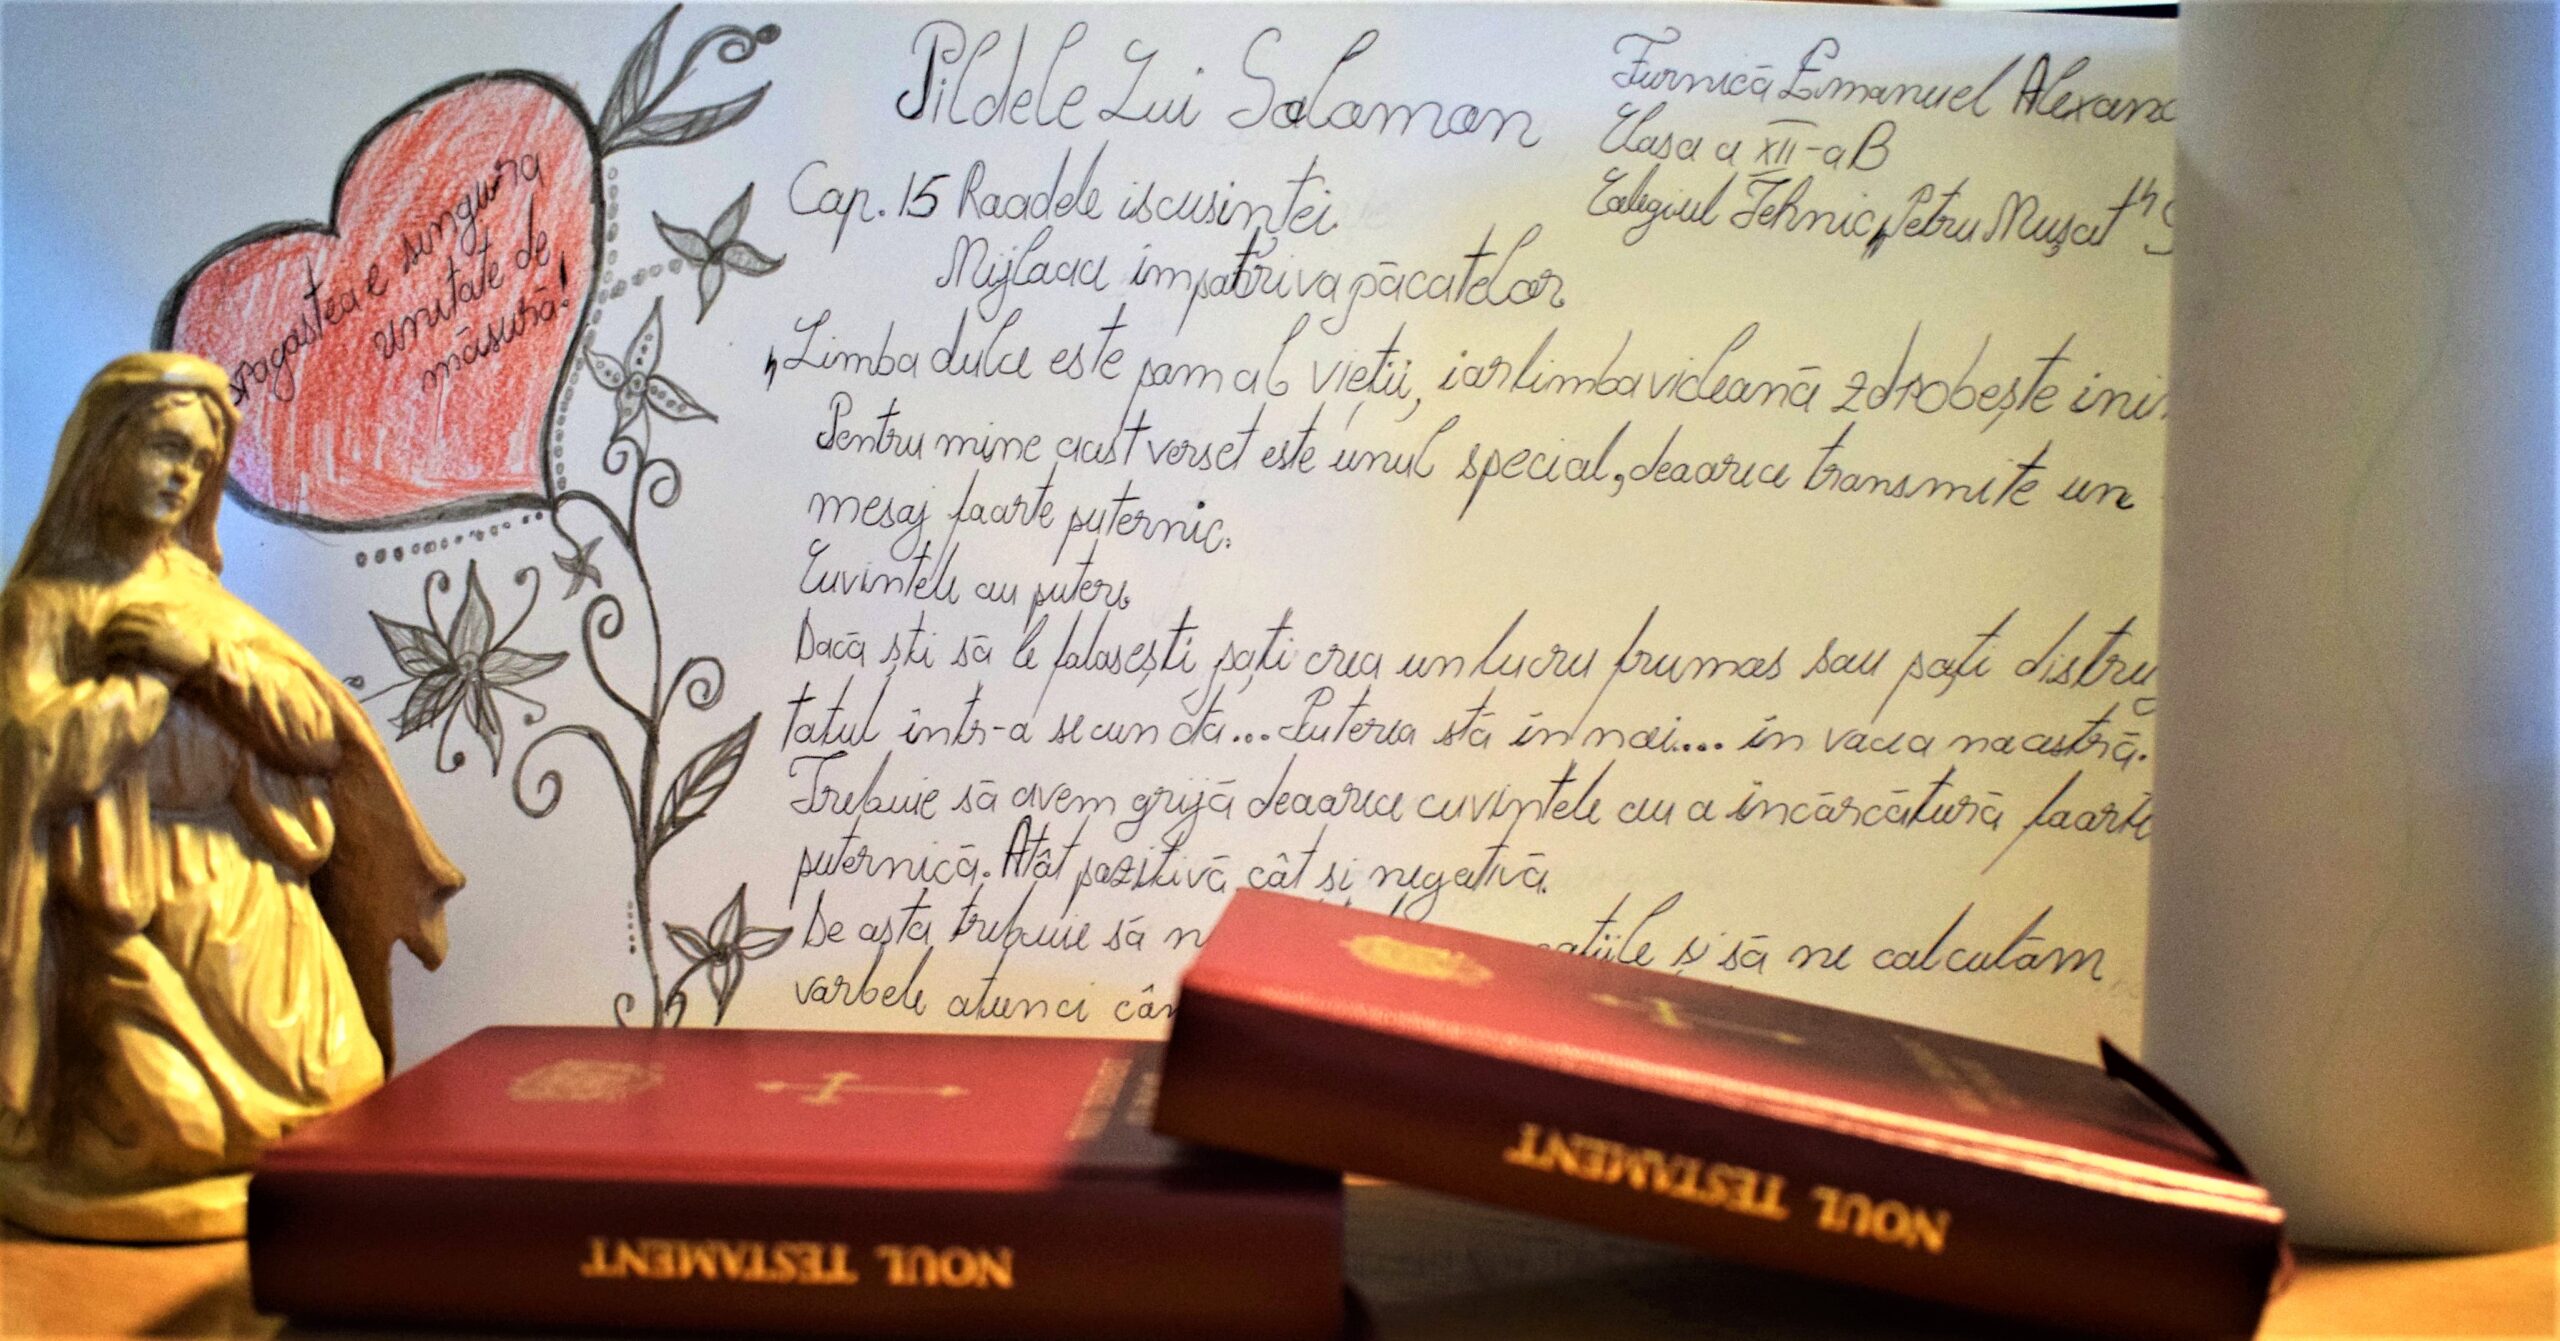 Pildele Lui Solomon
Furnică Emanuel Alexan
Clasa a XII-a B
Colegiul Tehnic „Petru Mușat"
Cap. 15 Roadele iscusinței
Mijloace împotriva păcatelor
Dragostea e singura
unitate de
măsură!
„Limba dulce este pom al vieții, iar limba vicleană zdrobește ini
Pentru mine acest verset este unul special, deoarece transmite un
mesaj foarte puternic.
Cuvintele au putere
Dacă ști să le folosești poți crea un lucru frumos sau poți distrug
totul într-o secundă... Puterea stă în noi.... în vocea noastră.
Trebuie să avem grijă deoarece cuvintele au o încărcătură foarte
puternică. Atât pozitivă cât si negativă.
De asta trebuie să n și să ne calculăm
vorbele atunci cân
NOUL TESTAMENT
NOUL TESTAMENT